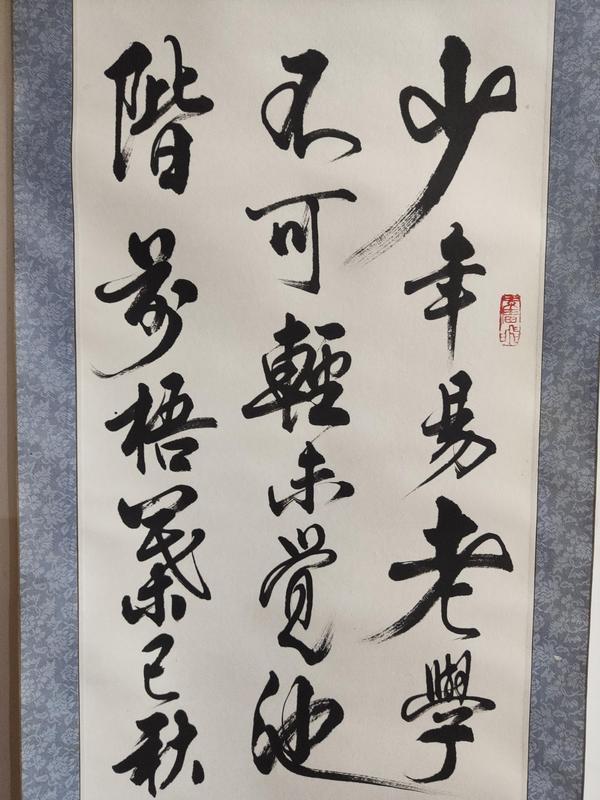 少年易老學
不可輕未覺池
階前梧葉已秋